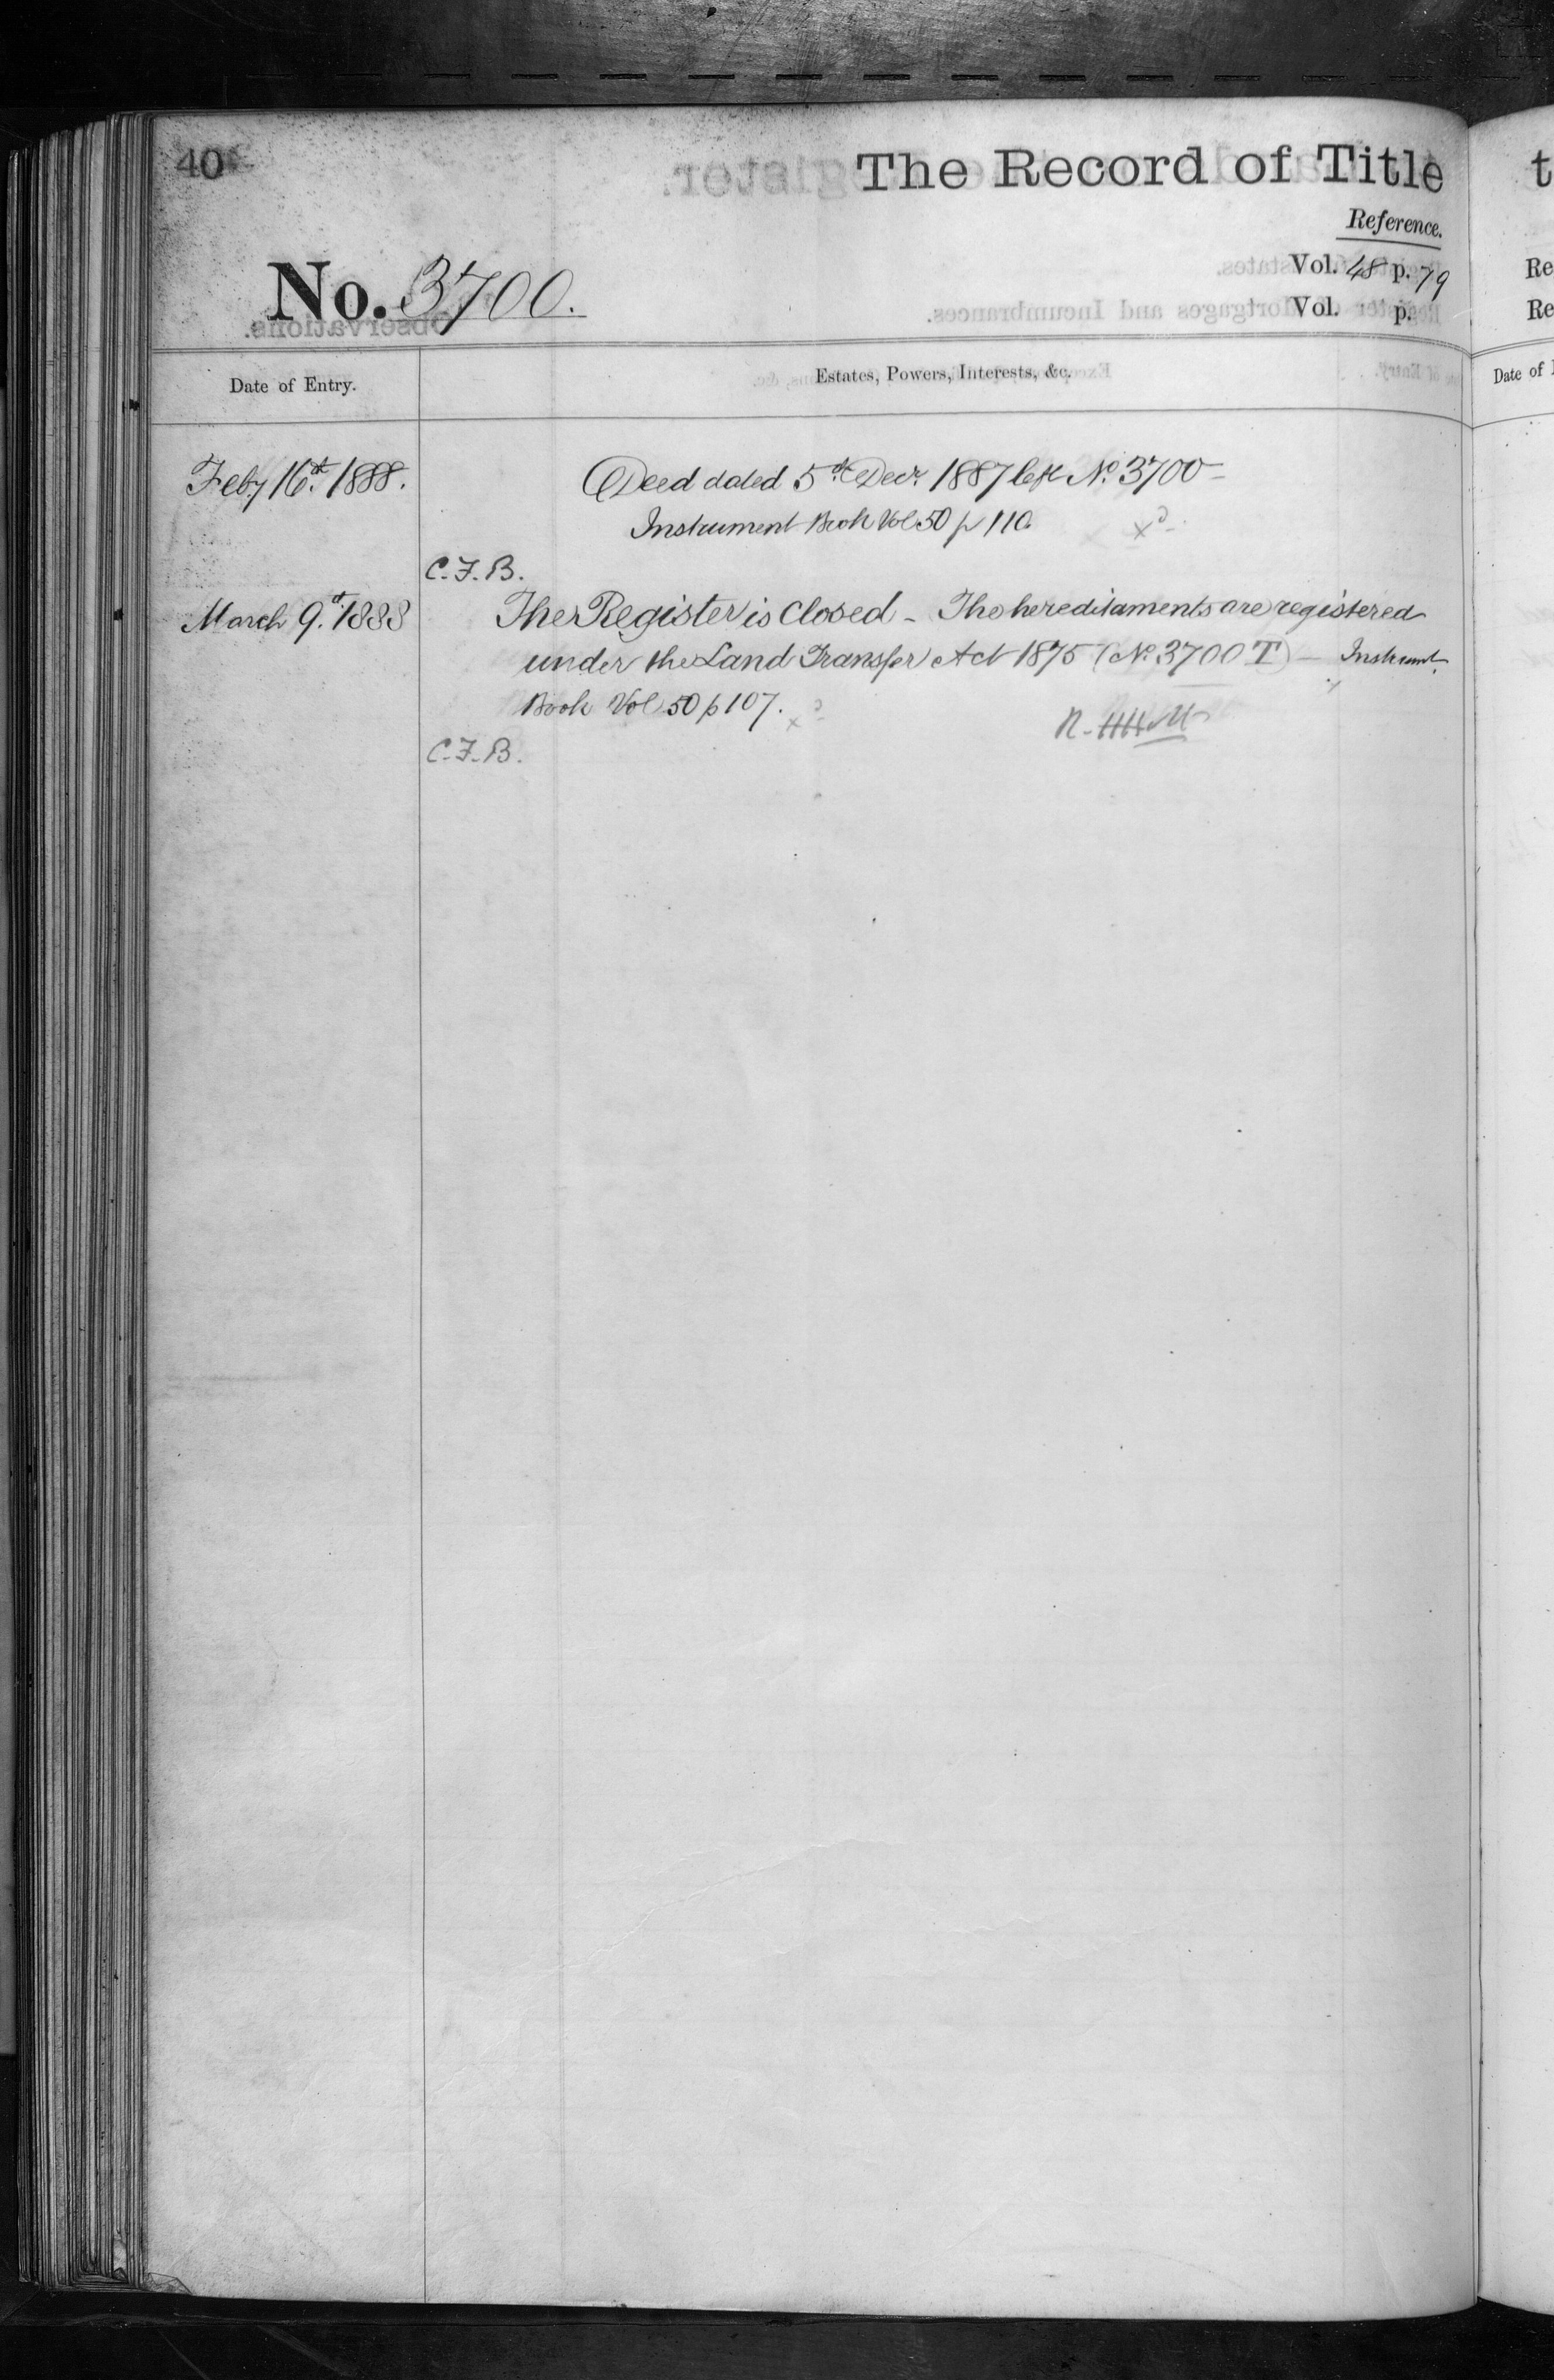 40
The Record of Title
Reference.
Vol. 48 p. 79
No. 3700.
Vol. p.
Date of Entry.
Estates, Powers, Interests, &c.
Feby 16th 1888.
Deed dated 5th Decr 1887 left No 3700 -
Instrument Book Vol 50 p 110.
C.F.B.
March 9th 1888
The Register is Closed - The hereditaments are registered
under the Land Transfer Act 1875 (No 3700 T) - Instrumt
Book Vol 50 p 107.
C.F.B.
t
Re
Re
Date of